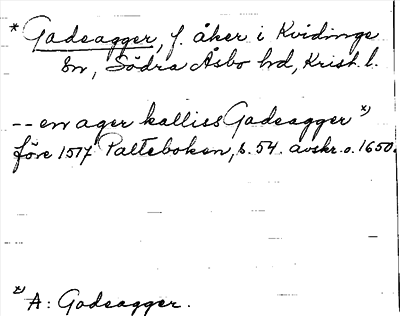 * Gadeagger, f. åker i Kvidinge
sn, Södra Åsbo hd, Krist. l.
-- en ager kalliss Gadeagger *)
före 1517 Palteboken, s. 54. avskr. o. 1650.
*) A: Godeagger.